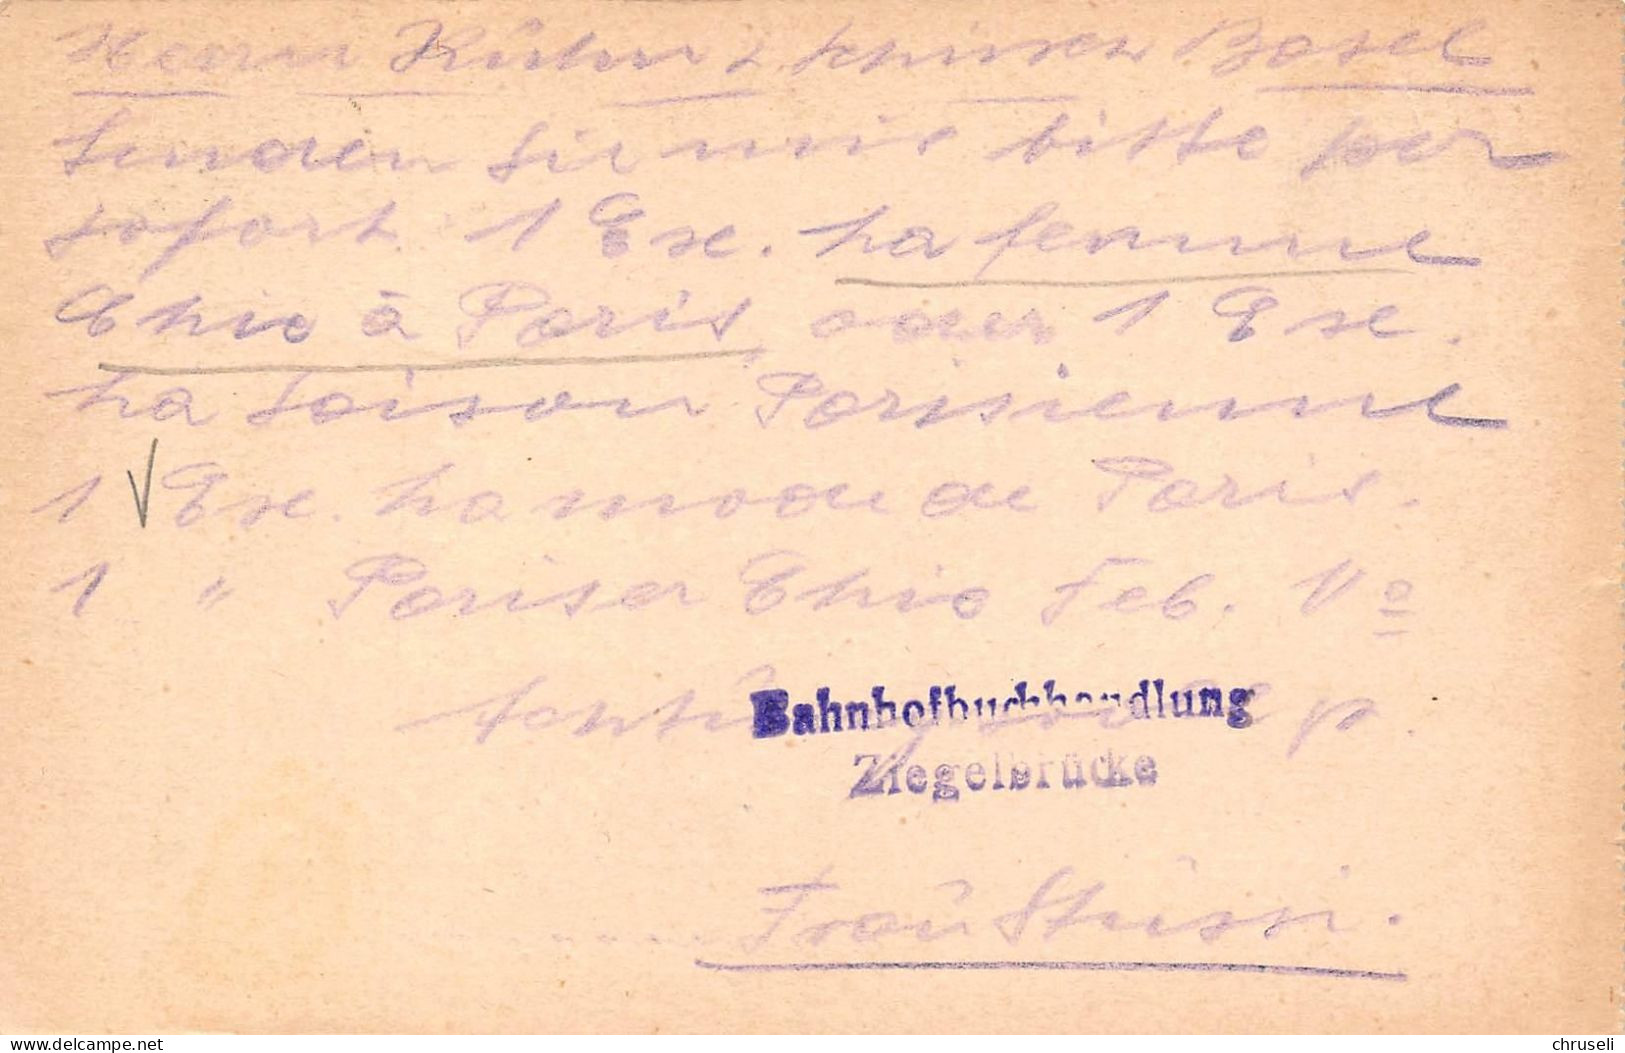 Herrn Kühn & Schinken Basel
Senden Sie mir bitte per
sofort 1 Ex. La femme
Chic à Paris, oder 1 Ex.
La Saison Parisienne
1 Ex. La mode de Paris.
1 " Pariser Chic Feb. No
Bahnhofbuchhandlung
Ziegelbrücke
Frau Stüssi.
delcampe.net
chruseli